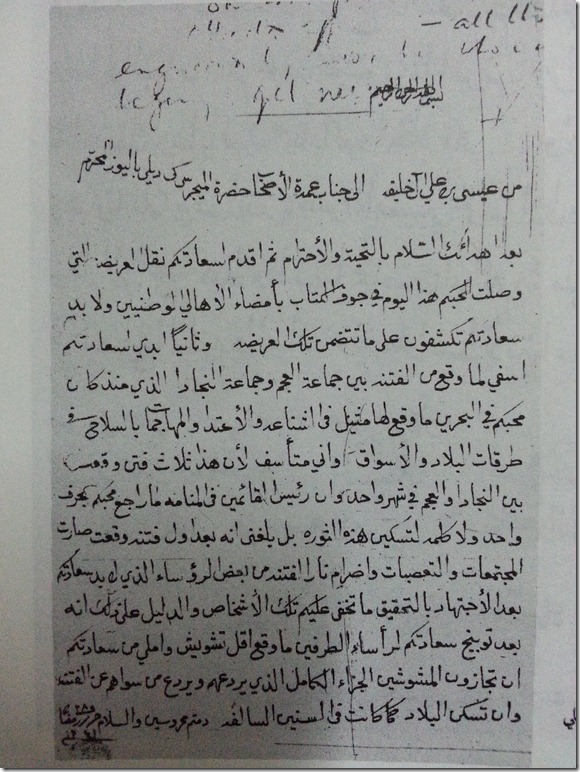 — all
بسم الله الرحمن الرحيم
من عيسى بن علي آل خليفه الى جناب عمدة الأصحا حضرة الميجر ديلي باليوز المحترم
بعد اهدائك السلام بالتحية والأحترام ثم اقدم لسعادتكم نقل العريضه التي
وصلت لمحبكم هذا اليوم في جوف المكتاب بأمضاء الأهالي الوطنيين ولا بد
سعادتكم تكشفون على ما تتضمن تلك العريضه وثانياً ابدي لسعادتكم
اسفي لما وقع من الفتنه بين جماعة العجم وجماعة النجادا الذي منذ كان
محبكم في البحرين ما وقع لها مثيل في الشناعه والأعتدا والمهاجما بالسلاح في
طرقات البلاد والأسواق واني متأسف لأن هذا ثلاث فتن وقعت
بين النجادا والعجم في شهر واحد وان رئيس القائمين في المنامه ما راجع محبكم بحرف
واحد ولا كلمه لتسكين هذه الثوره بل بلغني انه بعد اول فتنه وقعت صارت
المجتمعات والتعصبات واضرام نار الفتنه من بعض الرؤساء الذي لا بد سعادتكم
بعد الأجتهاد بالتحقيق ما تخفى عليكم تلك الأشخاص والدليل على ذلك انه
بعد توبيخ سعادتكم لرأساء الطرفين ما وقع اقل تشويش واملي من سعادتكم
ان تجازون المشوشين الجزاء الكامل الذي يردعهم ويردع من سواهم عن الفتنه
وان تسكن البلاد كما كانت في السنين السالفه دمتم محروسين والسلام